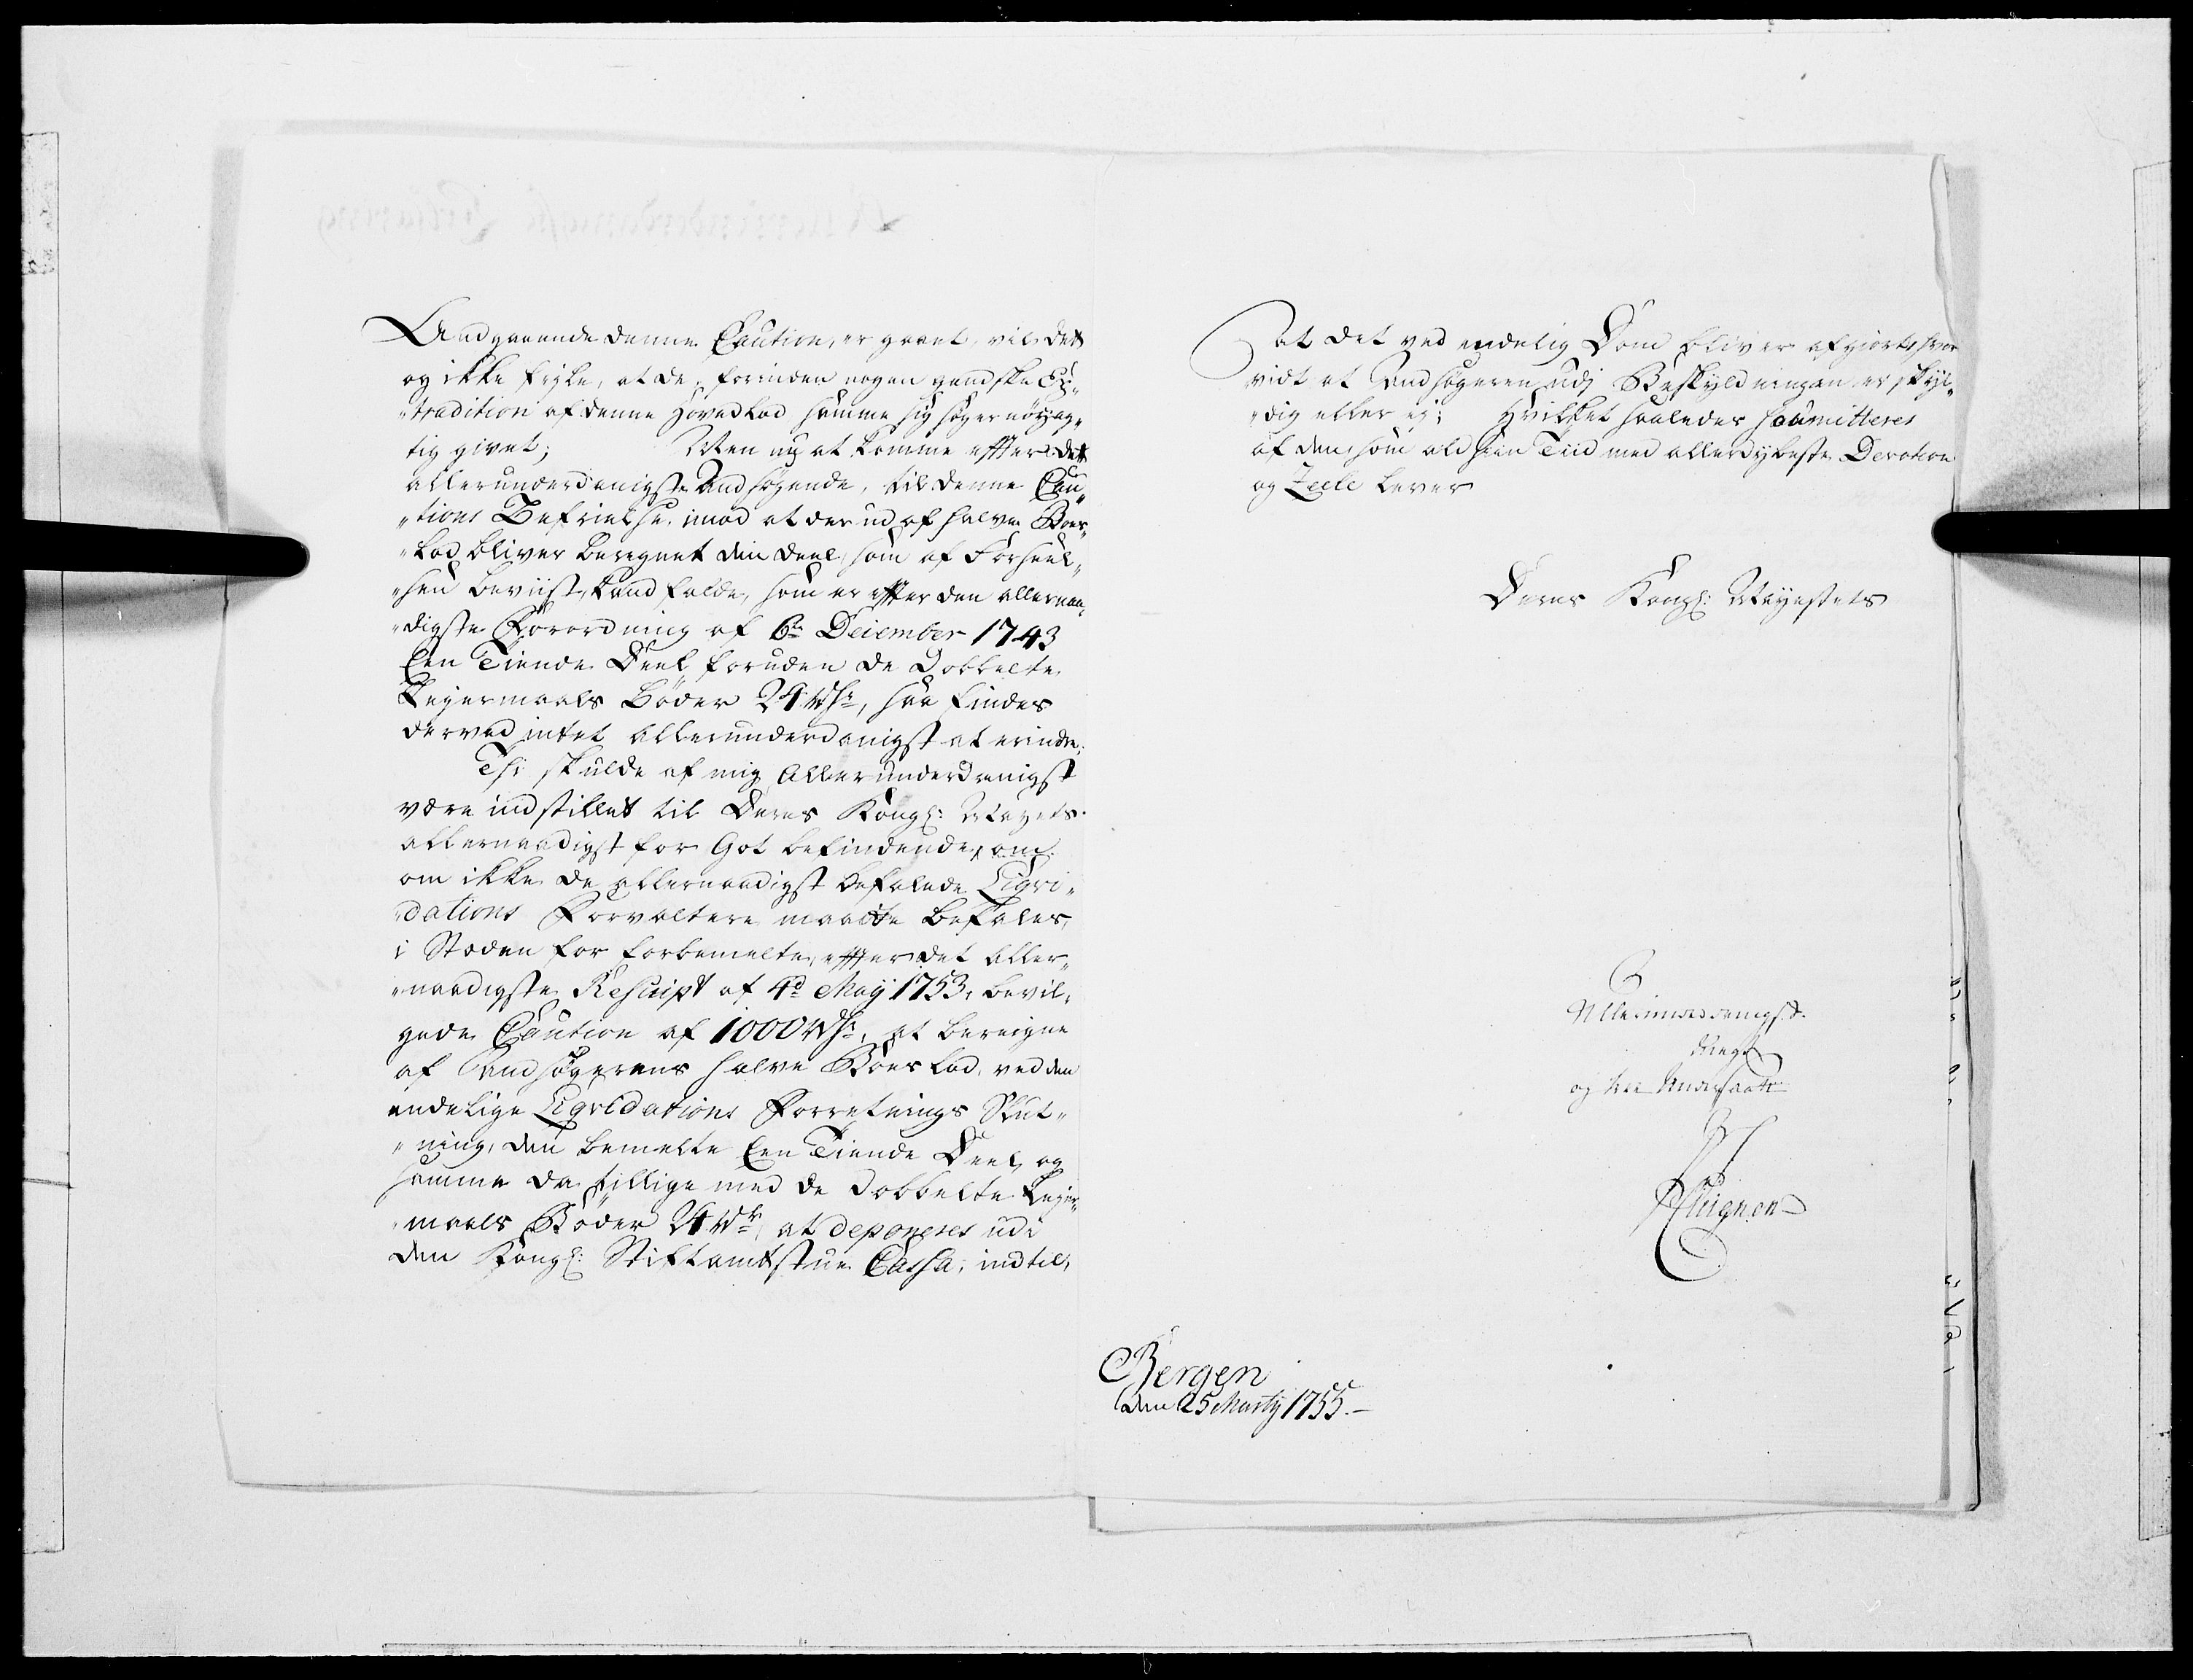 Andgaaende denne Caution, er gaaet, vil det
og ikke fejle, at de, forinden nogen gandske Ex-
"tradition af denne Hovedlod samme sig søger nøyag-
tig givet; Men nu at komme effter det
allerunderdanigste Andsøgende, til denne Cau-
"tions Befrielse, imod at der ud af halve Boes-
"Lod bliver beregnet den Deel, som af Forseel-
"sen beviist, kand falde, som er effter den allernaa-
"digste Forordning af 6te December 1743
Een Tiende Deel foruden de Dobbelte
Lejermaals Bøder 24 Rdr, saa findes
derved intet allerunderdanigst at erindre;
Thi skulde af mig Allerunderdanigst
være indstillet til Deres Kongl: Mayets
allernaadigst for Got befindende, om
om ikke de allernaadigst befalede Liqvi-
"dations Forvaltere maatte befales,
i Stæden for forbemelte, effter det Aller-
"naadigste Rescript af 4de Maij 1753, bevil-
gede Caution af 1000 Rdr, at bereigne
af Andsøgerens halve Boes Lod, ved den
endelige Liqvidations Forretnings Slut-
"ning, den bemelte Een Tiende Deel, og
samme da tillige med de Dobbelte Lejer-
"maals Bøder 24 Rdr, at deponeres udi
den Kongl: Stiftamtstue Cassa, indtil,
at det ved endelig Dom bliver afgiort, hvor
vidt at Andsøgeren udj Beskyldningen er skyl-
"dig eller ej; Hvilket saaledes soumitteres
af den, som ald sin Tiid med allerdybeste Devotion
og Zeele lever
Deres Kongl: Mayestets
Allerunderdanigst
og troe Undersaatt
Bergen
den 25 Martij 1755.